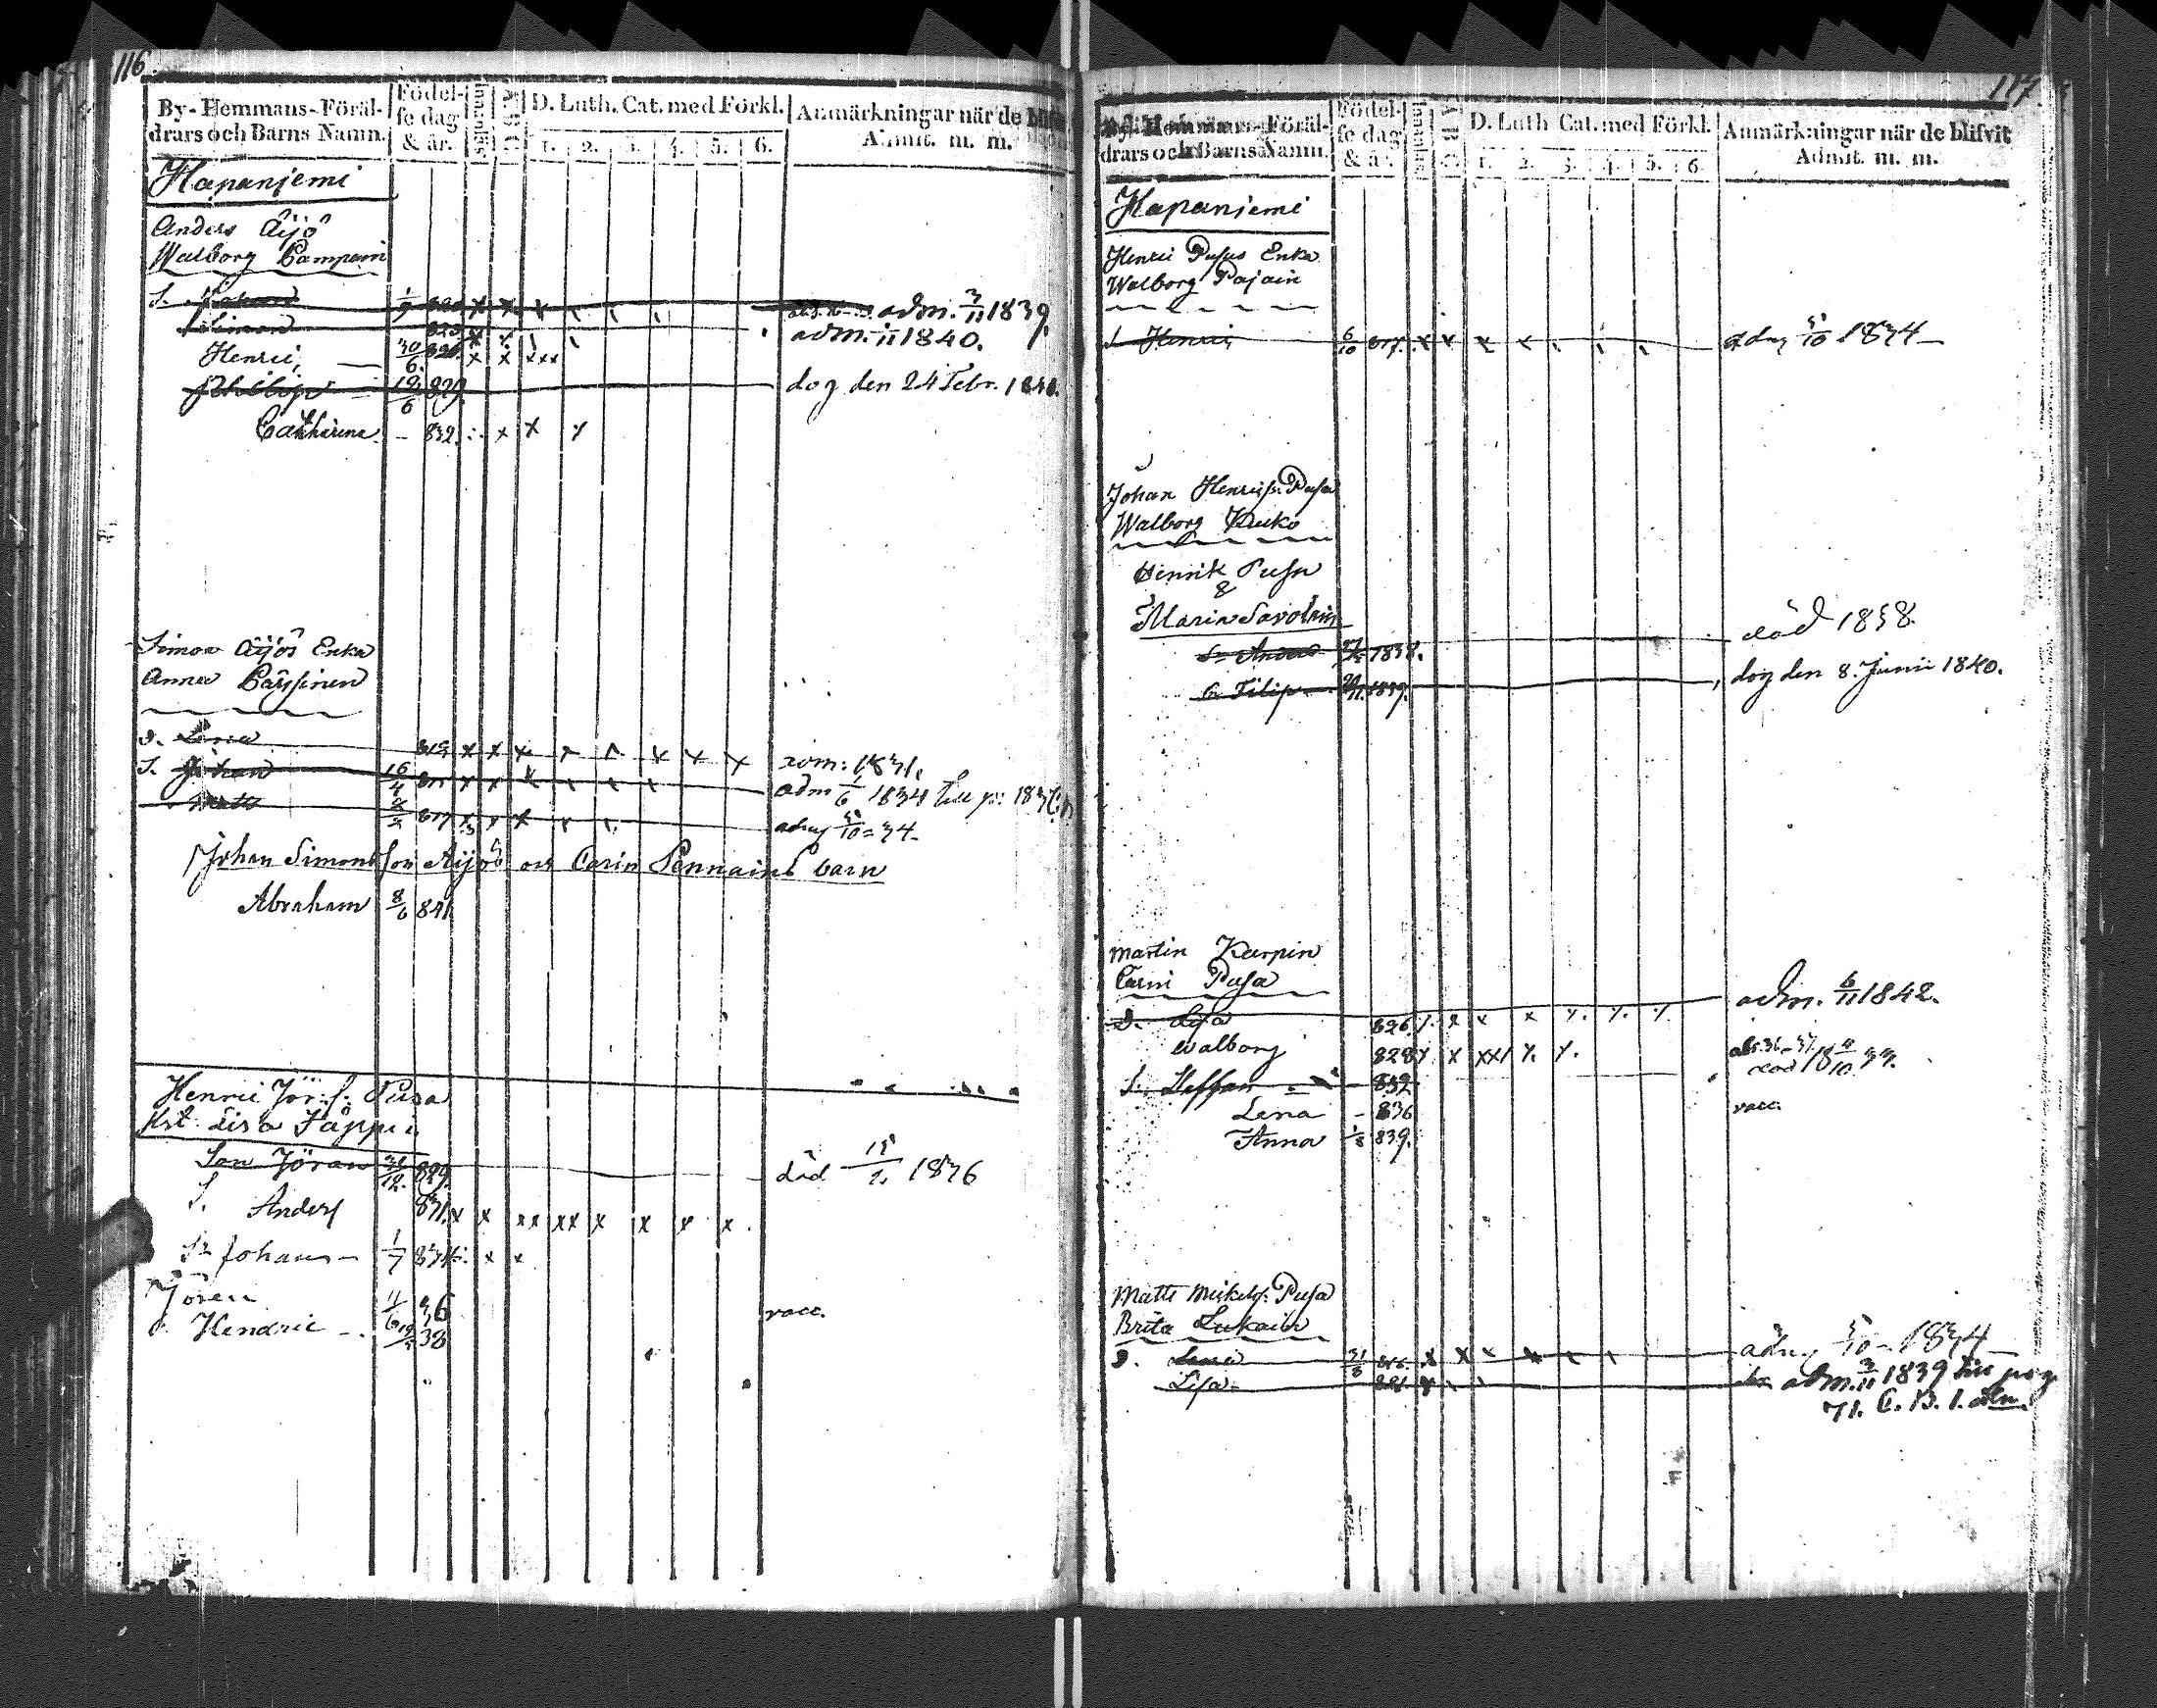 116
By-Hemmans-Föräl-
drars och Barns Namn.
Födel-
se dag
& år.
D. Luth. Cat. med Förkl.
1. 2. 3. 4. 5. 6.
Anmärkningar när de
Admit. m. m.
Hapaniemi
Anders Äijö
Walborg
S. Johan 1/9 x x x adm. 3/11 1839.
Simon 823 x adm. 1/11 1840.
Henric, 30/6 826 x x xxx
Philip 18/6 829 dog den 24 Febr. 1840.
Catharina - 832. x x
Simon Äijös Enka
Anna Päyſinen
D. Lena 815 x x x x x x adm: 1831.
S. Johan 16/4 x x x adm 1/6 1834
Matts 817 x x x adm 5/10 = 34-
Johan Simonsſon Äijös och Carin Pennains barn
Abraham 8/6 841
Henric Jör: ſ. Pusa
Hst. Lisa Jäppi
Son Jöran 31/12. 829. död 15/2. 1836
S. Anders 831. x x xx xx x x x x
Sn Johan - 1/7 834. x x
Jören 11/6 36 vacc.
Hendric - 38
117
drars och Barns Namn.
Födel-
se dag
& år.
D. Luth Cat. med Förkl.
1. 2. 3. 4. 5. 6.
Anmärkningar när de blifvit
Admit. m. m.
Hapaniemi
Henric Puſas Enka
Walborg Pajain
S Henric 6/10 817. x x x x adm 5/10 1834-
Johan Henricſ: Puſa
Walborg Kuko
Henrik Puſa
&
Maria Savolain
Sn Anders 1838. död 1838.
Sn Filip 1839. dog den 8. Junii 1840.
Martin Karpin
Carin Puſa
D. Liſa 826 x x x adm. 6/11 1842.
Walborg 828 x x
S. Steffan - 832
Lena - 836 vacc.
Anna 1/8 839.
Matts Mickelſ: Puſa
Brita Lukain
D. Lena 31/8 816 x x adm 5/10 - 1834
Liſa 821 adm. 3/11 1839 till pag
71. C. B. 1.